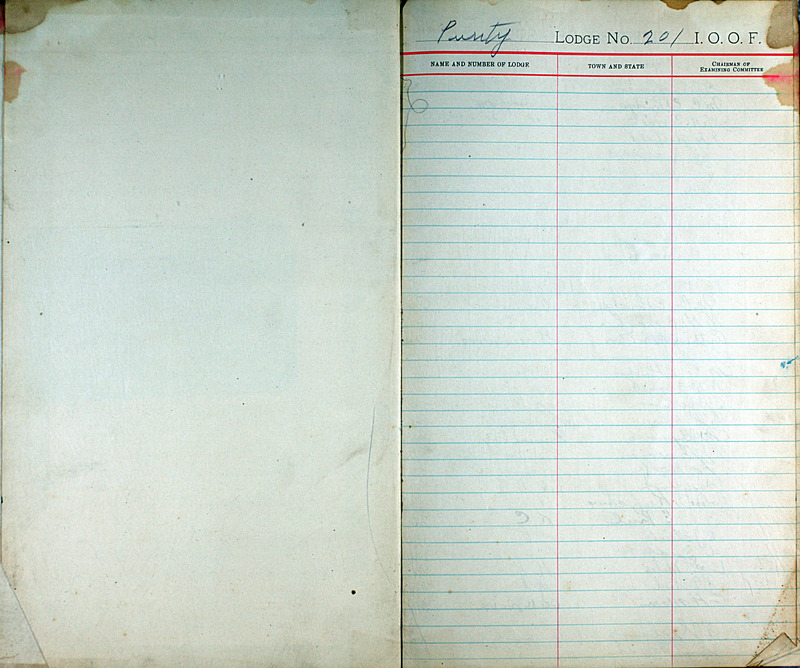 Purity LODGE NO. 201 I. O. O. F.
NAME AND NUMBER OF LODGE TOWN AND STATE CHAIRMAN OF EXAMINING COMMITTEE